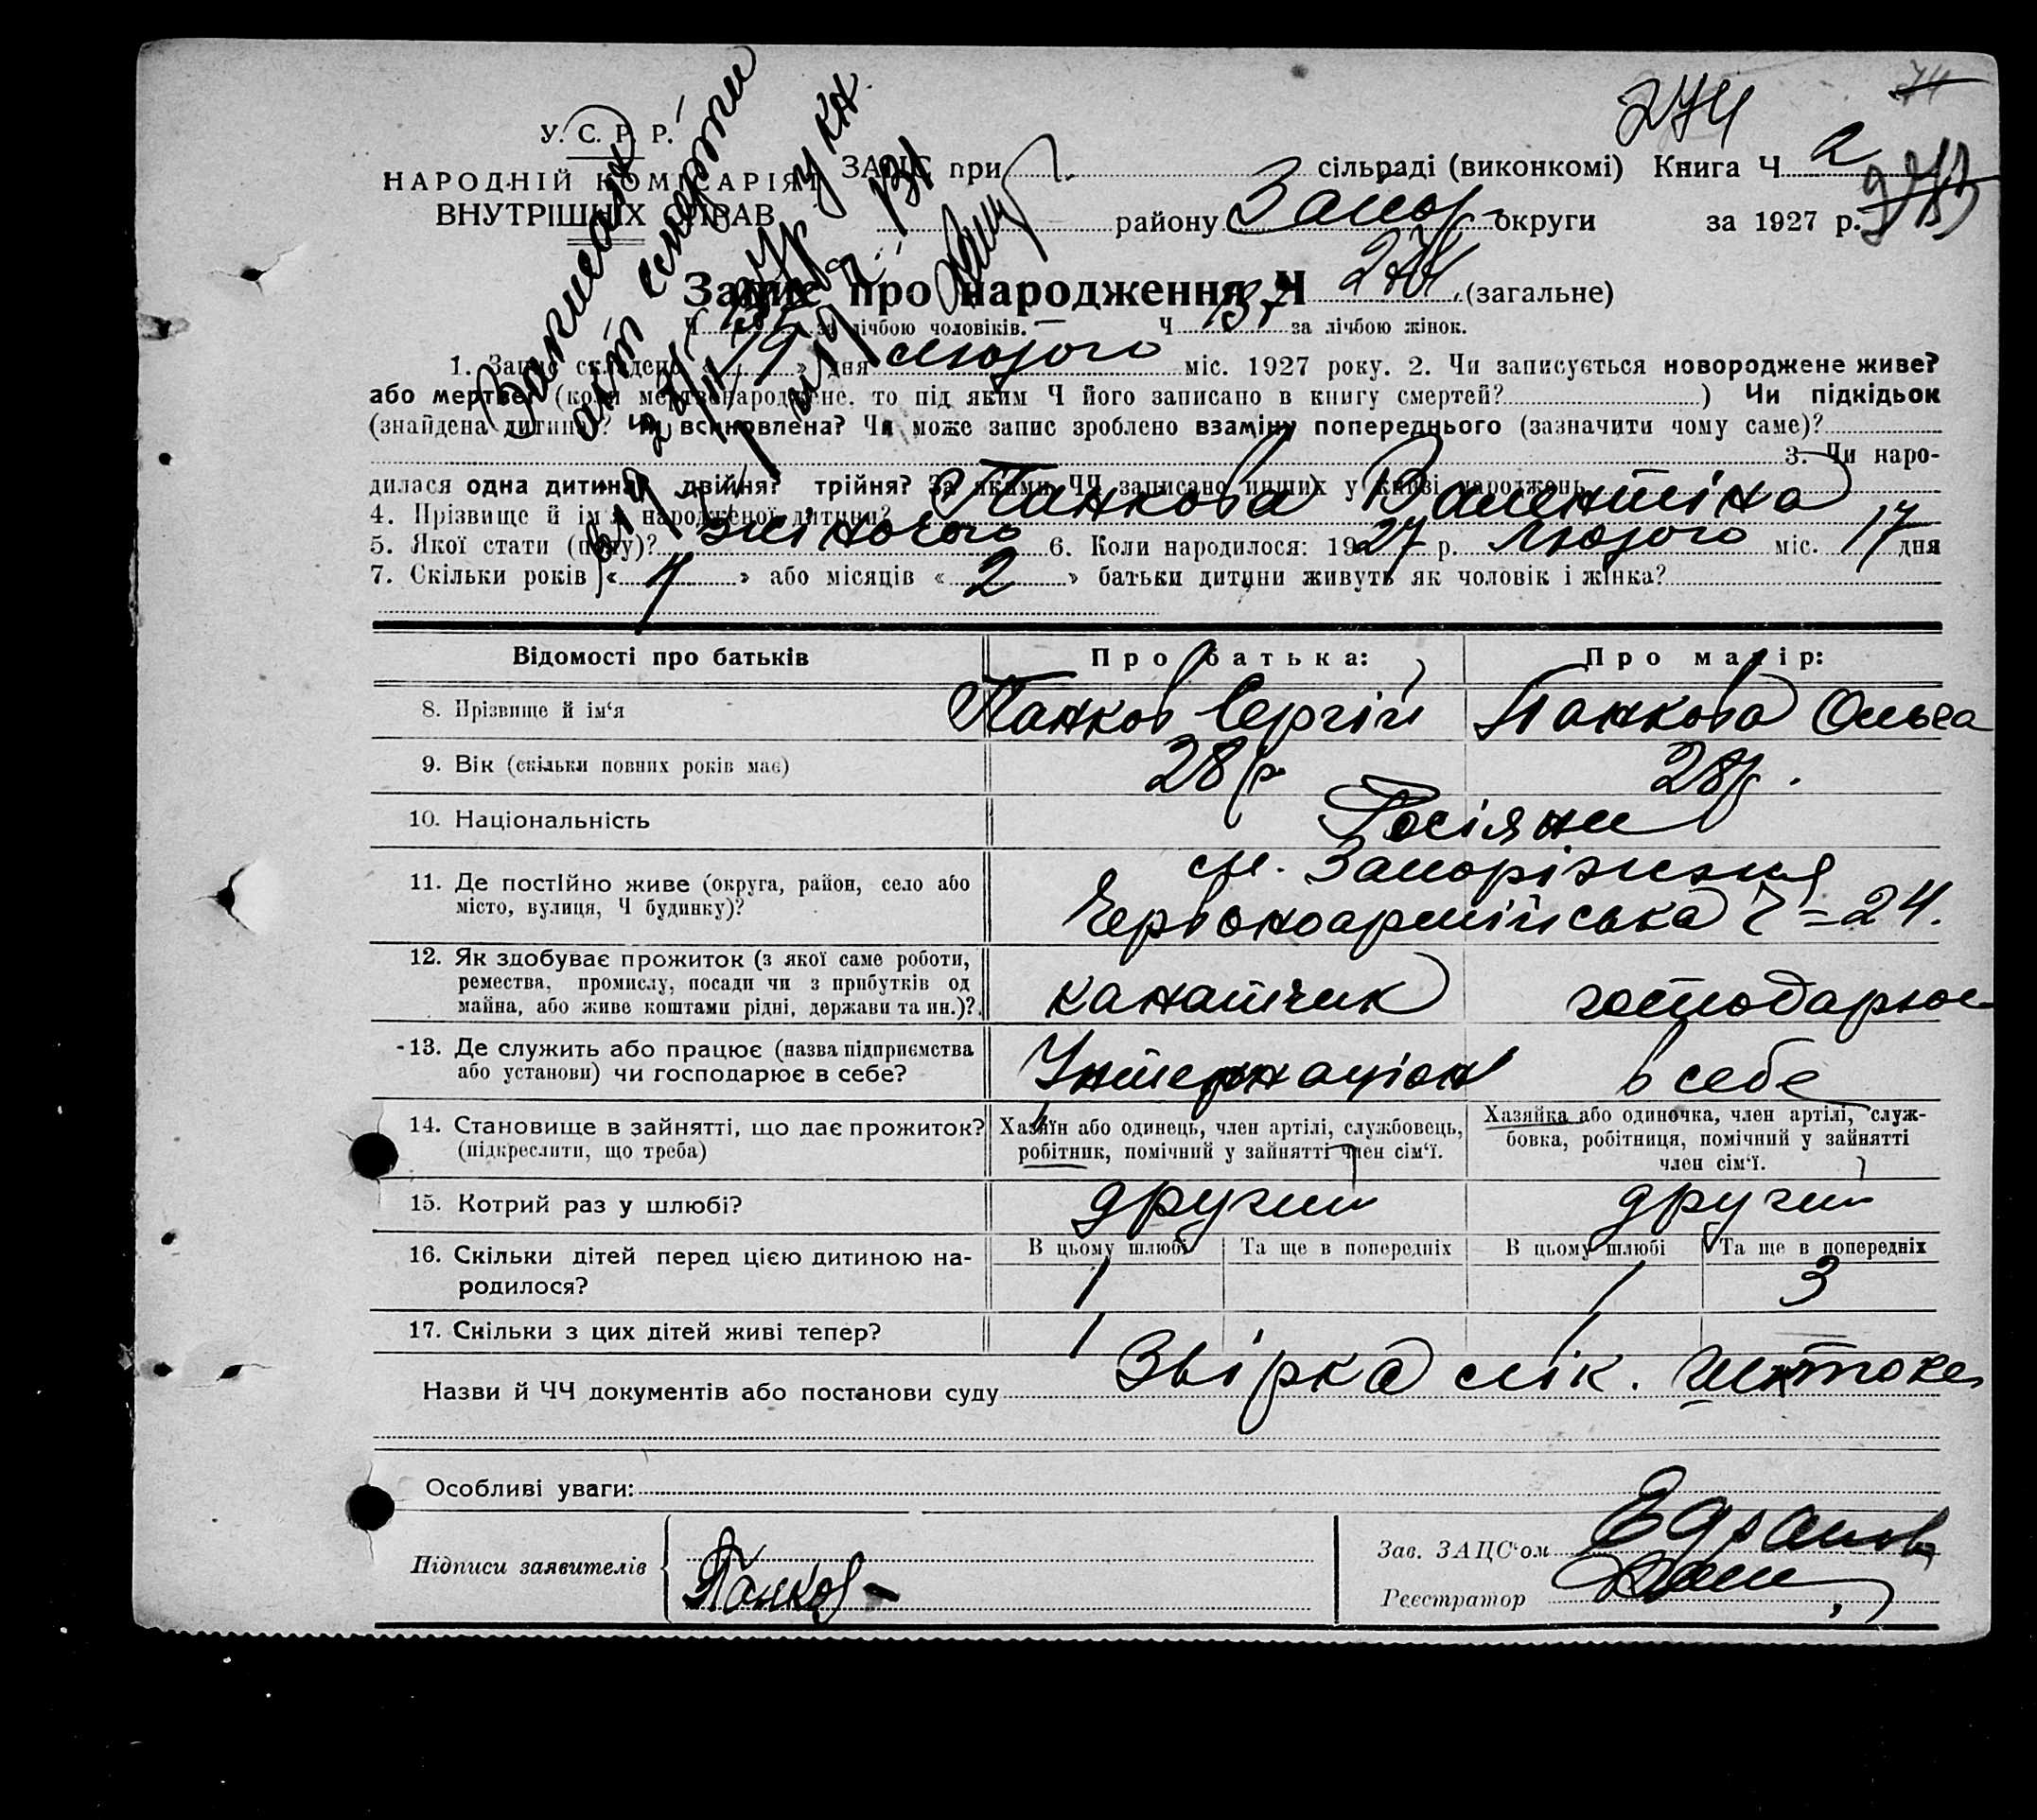 274
74
У. С. Р. Р.
НАРОДНІЙ КОМІСАРІЯТ
ВНУТРІШНІХ СПРАВ
ЗАЦС при сільраді (виконкомі) Книга Ч 2
району Запор округи за 1927 р.
Запис про народження Ч 274 (загальне)
Ч за лічбою чоловіків. — Ч 137 за лічбою жінок.
1. Запис складено «19» дня лютого міс. 1927 року. 2. Чи записується новороджене живе?
або мертве? (коли мертвонароджене, то під яким Ч його записано в книгу смертей? ) Чи підкідьок
(знайдена дитина)? Чи всиновлена? Чи може запис зроблено взамін попереднього (зазначити чому саме)?
3. Чи наро-
дилася одна дитина? двійня? трійня? За якими ЧЧ записано инших у книзі народжень
4. Прізвище й ім'я народженої дитини? Панкова Валентіна
5. Якої стати (полу)? жіночого 6. Коли народилося: 1927 р. лютого міс. 17 дня
7. Скільки років «4» або місяців «2» батьки дитини живуть як чоловік і жінка?
Відомості про батьків Про батька: Про матір:
8. Прізвище й ім'я Панков Сергій Панкова Ольга
9. Вік (скільки повних років має) 28 р. 28 р.
10. Національність Росіяни
11. Де постійно живе (округа, район, село або м. Запоріжжя
місто, вулиця, Ч будинку)? Червоноармійська Ч=24.
12. Як здобуває прожиток (з якої саме роботи,
ремества, промислу, посади чи з прибутків од
майна, або живе коштами рідні, держави та ин.)? канатчик господарює
13. Де служить або працює (назва підприємства
або установи) чи господарює в себе? Інтернаціон в себе
14. Становище в зайнятті, що дає прожиток?
(підкреслити, що треба)
Хазяїн або одинець, член артілі, службовець,
робітник, помічний у зайнятті член сім'ї.
Хазяйка або одиночка, член артілі, служ-
бовка, робітниця, помічний у зайнятті
член сім'ї.
15. Котрий раз у шлюбі? другий другий
В цьому шлюбі Та ще в попередніх В цьому шлюбі Та ще в попередніх
16. Скільки дітей перед цією дитиною на-
родилося? 1 1 3
17. Скільки з цих дітей живі тепер? 1 1 —
Назви й ЧЧ документів або постанови суду Звірка лік.
Особливі уваги:
Підписи заявителів Панков
Зав. ЗАЦС'ом
Реєстратор
Записаний
акт смерти